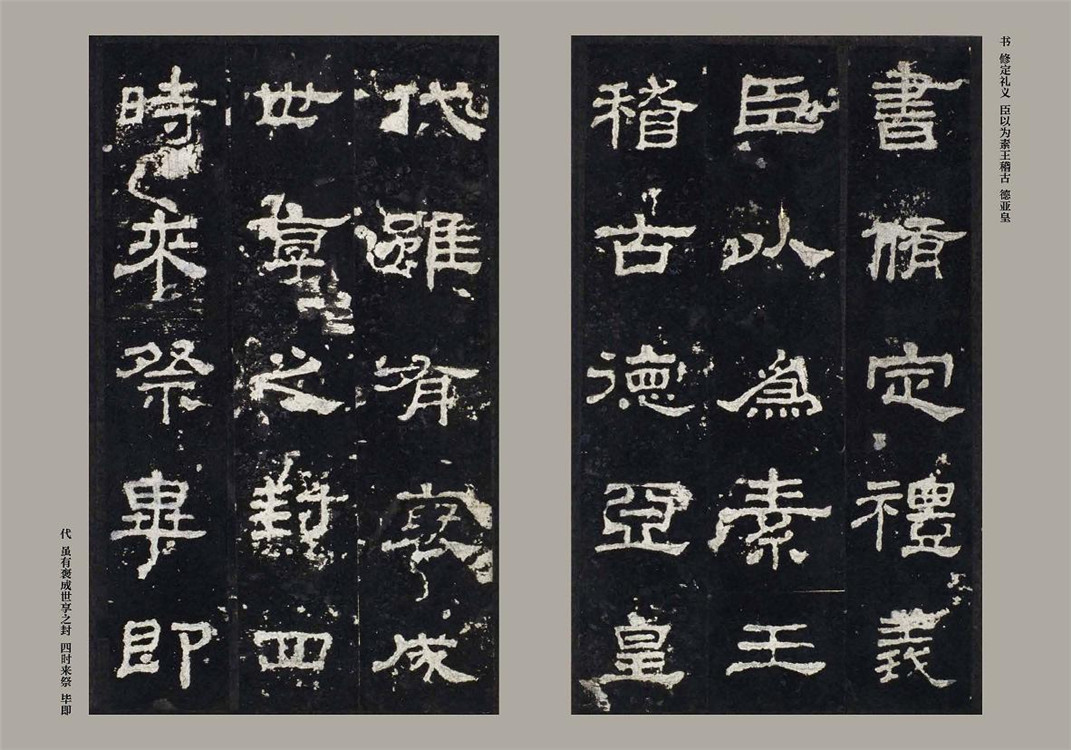 书 修定礼义 臣以为素王稽古 德亚皇
書脩定禮義
臣以為素王
稽古德亞皇
代雖有襃成
世享之封四
時來祭畢即
代 虽有褒成世享之封 四时来祭 毕即